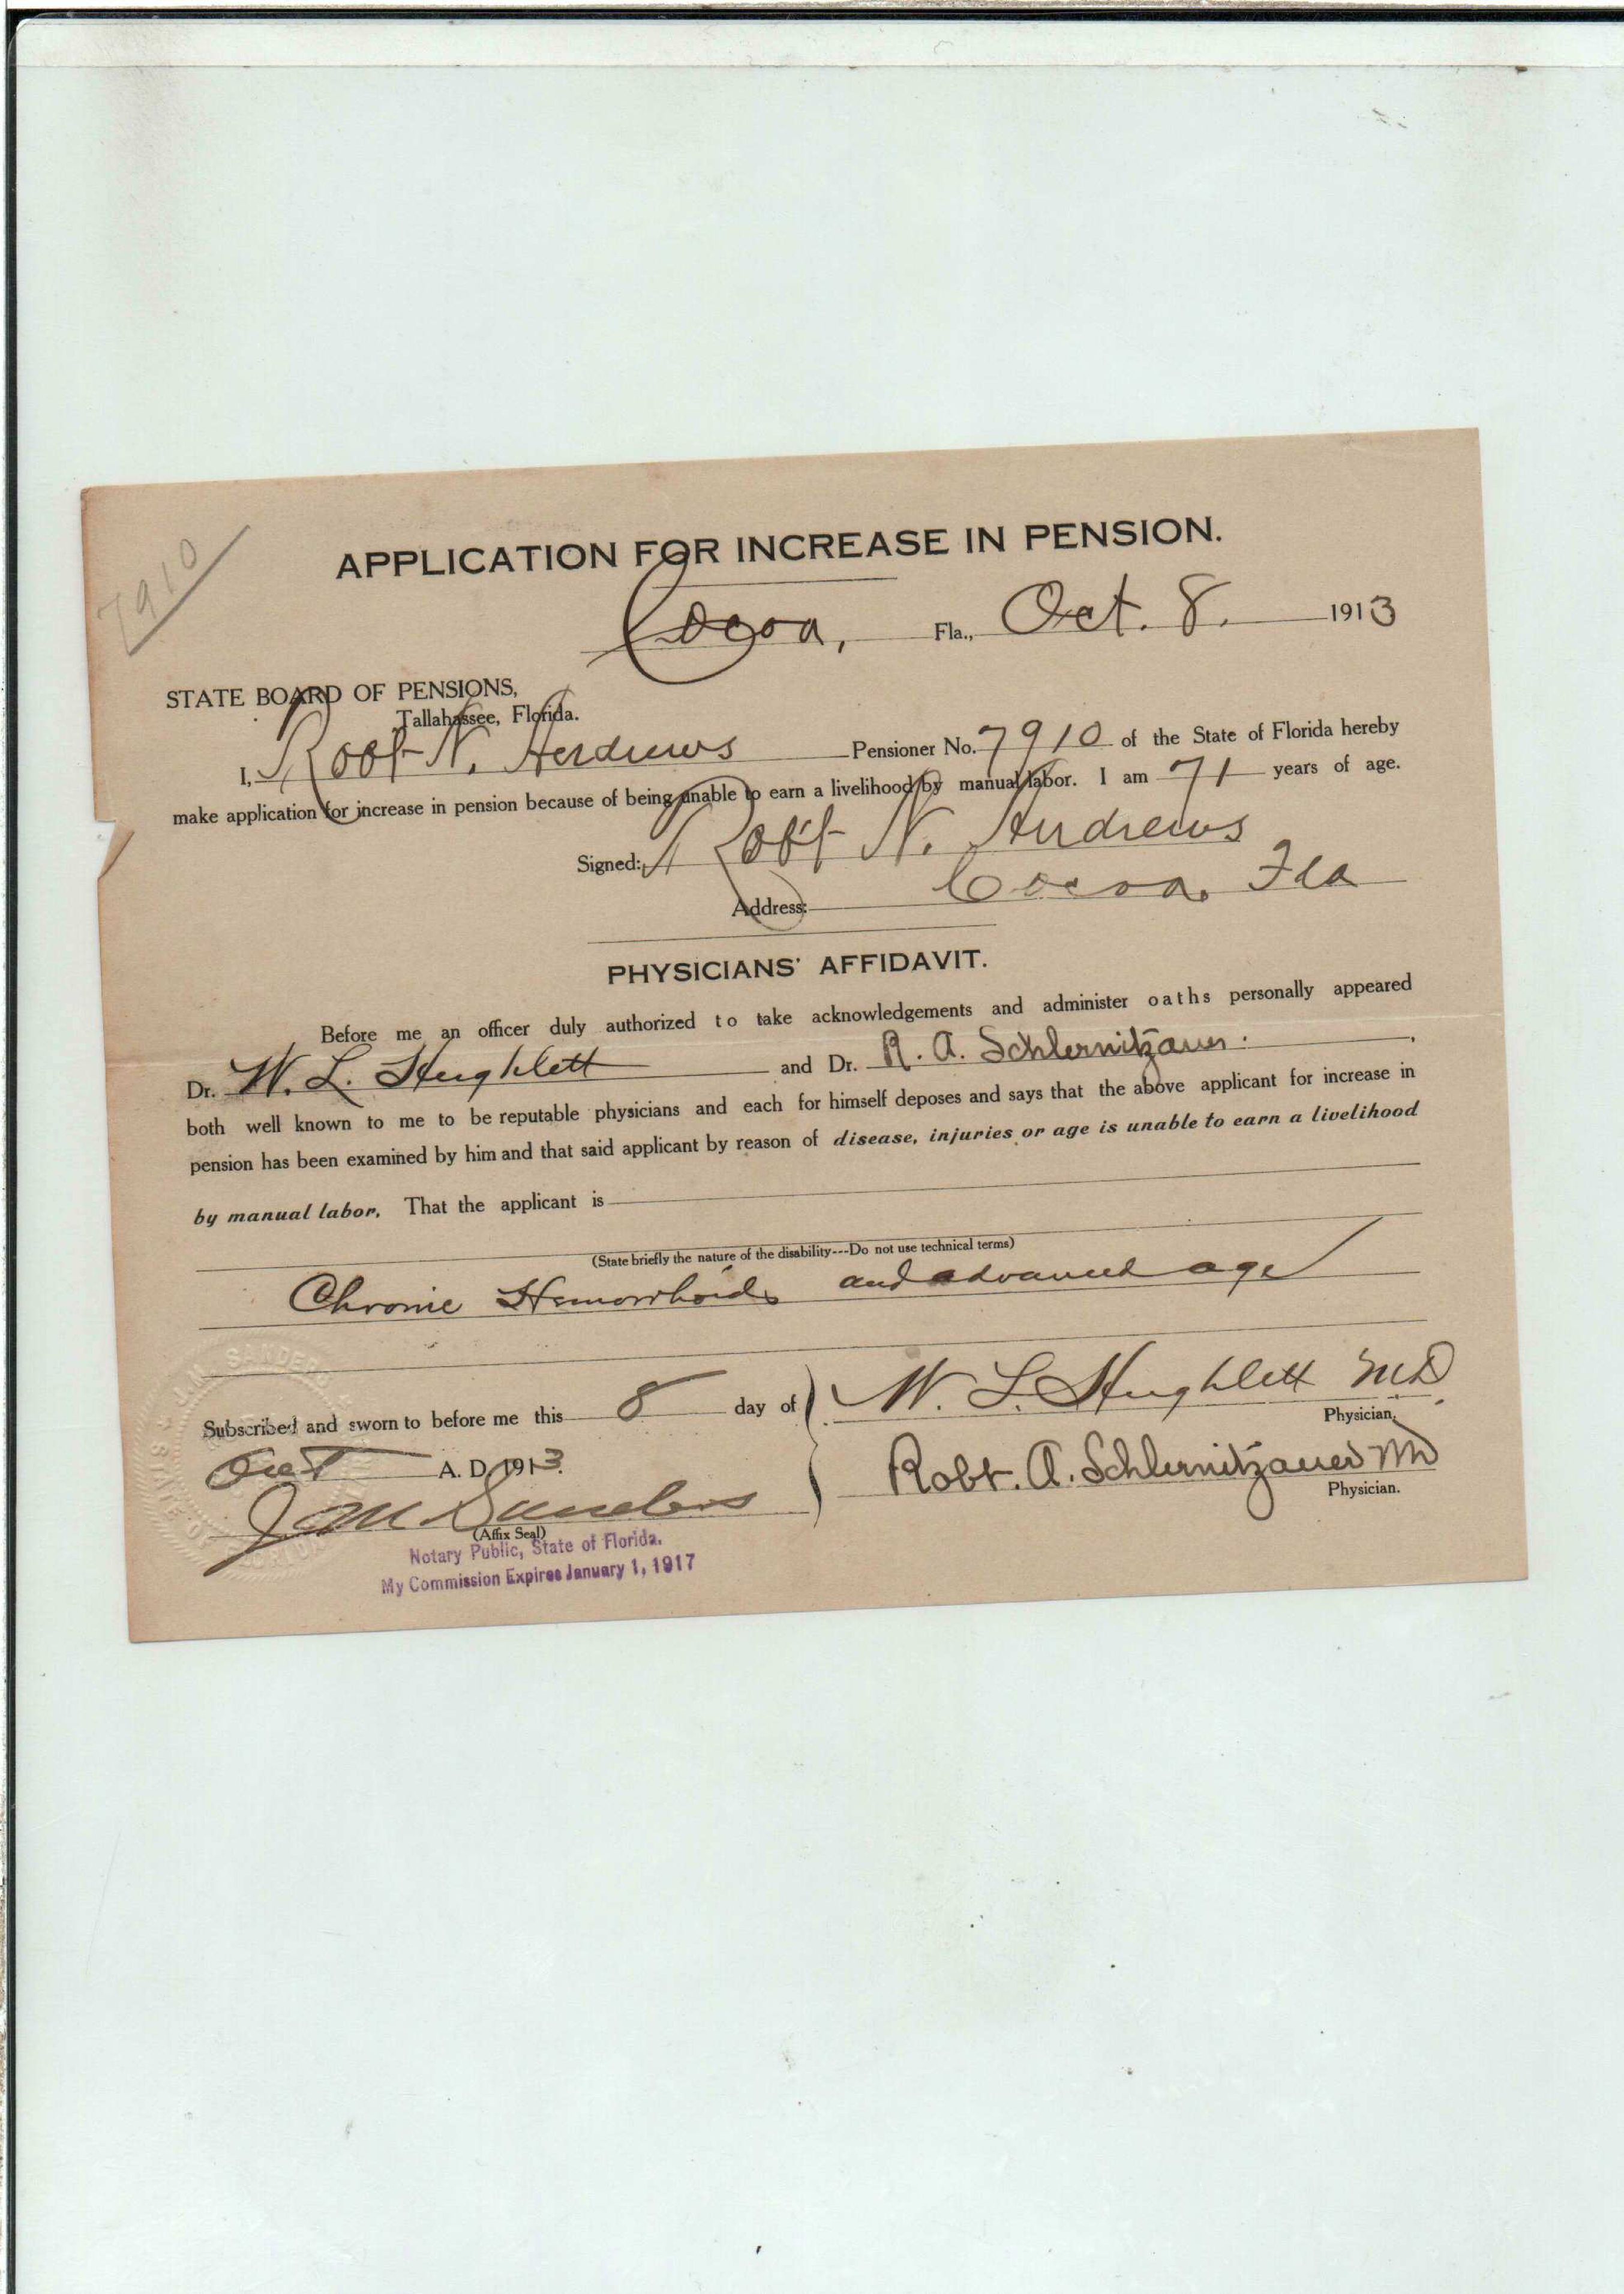 7910
APPLICATION FOR INCREASE IN PENSION.
Cocoa, Fla., Oct. 8. 1913
STATE BOARD OF PENSIONS,
Tallahassee, Florida.
I, Robt N. Andrews Pensioner No. 7910 of the State of Florida hereby
make application for increase in pension because of being unable to earn a livelihood by manual labor. I am 71 years of age.
Signed: Robt N. Andrews
Address: Cocoa, Fla
PHYSICIANS' AFFIDAVIT.
Before me an officer duly authorized to take acknowledgements and administer oaths personally appeared
Dr. W. L. Hughlett and Dr. R. A. Schlernitzauer.
both well known to me to be reputable physicians and each for himself deposes and says that the above applicant for increase in
pension has been examined by him and that said applicant by reason of disease, injuries or age is unable to earn a livelihood
by manual labor. That the applicant is
(State briefly the nature of the disability---Do not use technical terms)
Chronic Hemorrhoids and advanced age
Subscribed and sworn to before me this 8 day of W. L. Hughlett MD
Physician.
Oct A. D. 1913. Robt. A. Schlernitzauer MD
Physician.
J M Sanders
(Affix Seal)
Notary Public, State of Florida.
My Commission Expires January 1, 1917